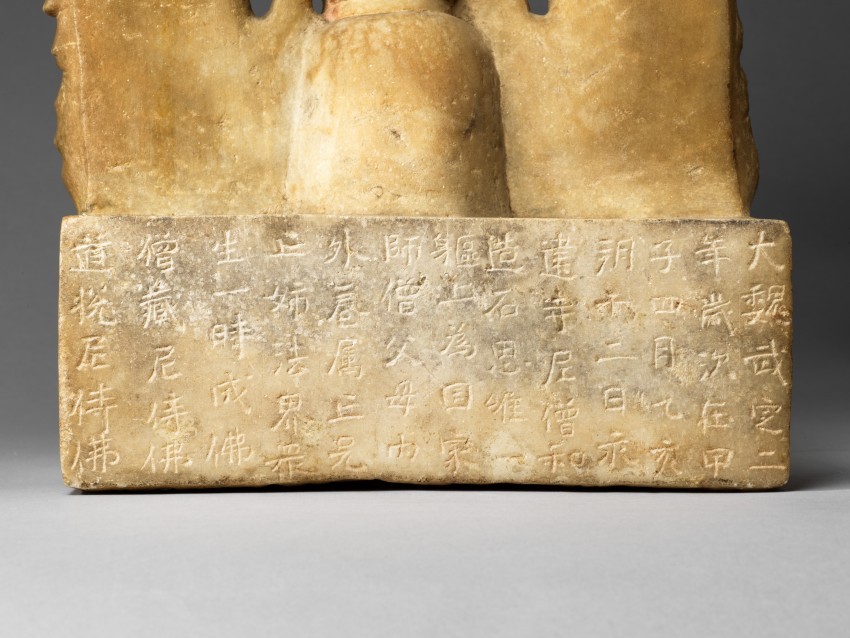 大魏武定二
年歲次在甲
子四月乙亥
朔十二日永
建寺尼僧和
造石思惟一
軀上為囯家
師僧父母内
外眷属亡兄
亡姉法界眾
生一時成佛
僧藏尼侍佛
道悦尼侍佛